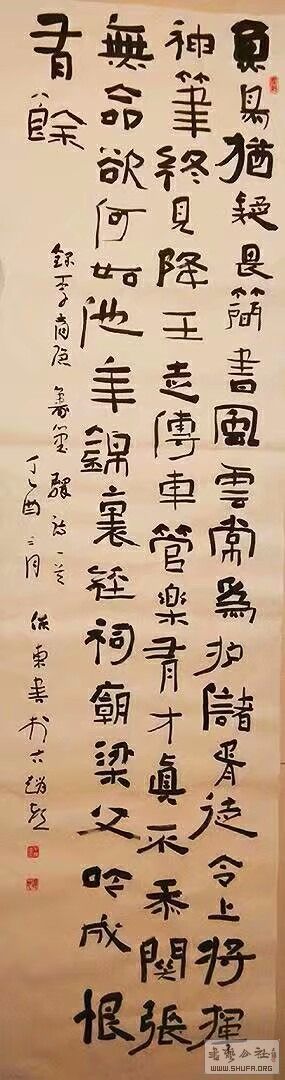 魚鳥猶疑畏簡書風雲常為护儲胥徒令上將揮
神筆終見降王走傳車管樂有才眞不忝關張
無命欲何如他年錦裏經祠廟梁父吟成恨
有餘
錄李商隐籌筆驛詩一首
丁酉三月 東書於古趙
書藝公社
WWW.SHUFA.ORG